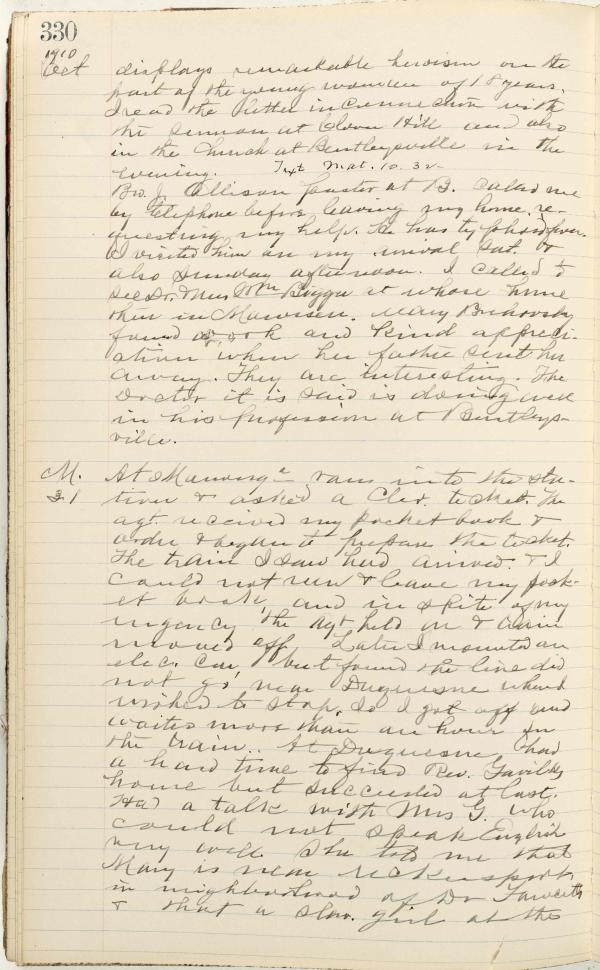 330
1910
Oct displays remarkable heroism on the
part of the young woman of 18 years.
I read the letter in connection with
the sermon at Clover Hill and also
in the Church at Bentleysville in the
evening. Text Mat. 10. 32
Bro. J. Ellison pastor at B. called me
by telephone before leaving my home, re-
questing my help. He has typhoid fever.
I visited him on my arrival Sat. &
also Sunday afternoon. I called to
see Dr. & Mrs Wm at whose home
then in Mary
found work and kind appreci-
ation when her father sent her
away. They are interesting. The
Doctor it is said is doing well
in his profession at Bentleys-
ville.
M. At ran into the sta-
31 tion & asked a Clev. ticket. The
agt. received my pocket book &
order & began to prepare the ticket.
The train I saw had arrived. & I
could not run & leave my pock-
et book, and in spite of my
urgency the agt held on & train
moved off. Later I mounted an
elec. car, but found the line did
not go near Duquesne where I
wished to stop. So I got off and
waited more than an hour for
the train. At Duquesne, had
a hard time to find Rev.
home but succeeded at last.
Had a talk with Mrs G. who
could not speak English
very well. She told me that
Mary is near
in neighborhood of Dr Fawcetts
& that a Slav. girl at the